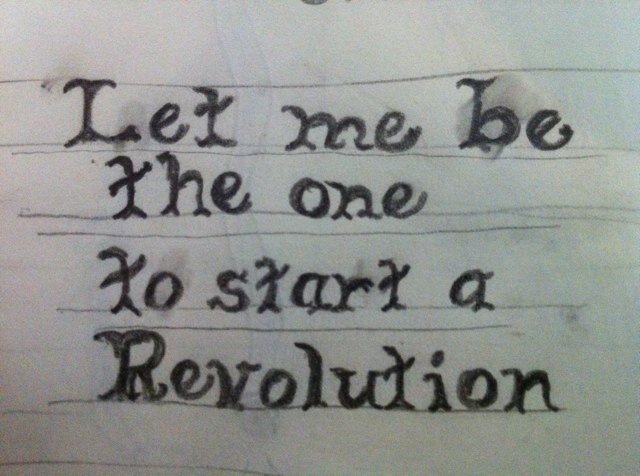 Let me be
the one
to start a
Revolution